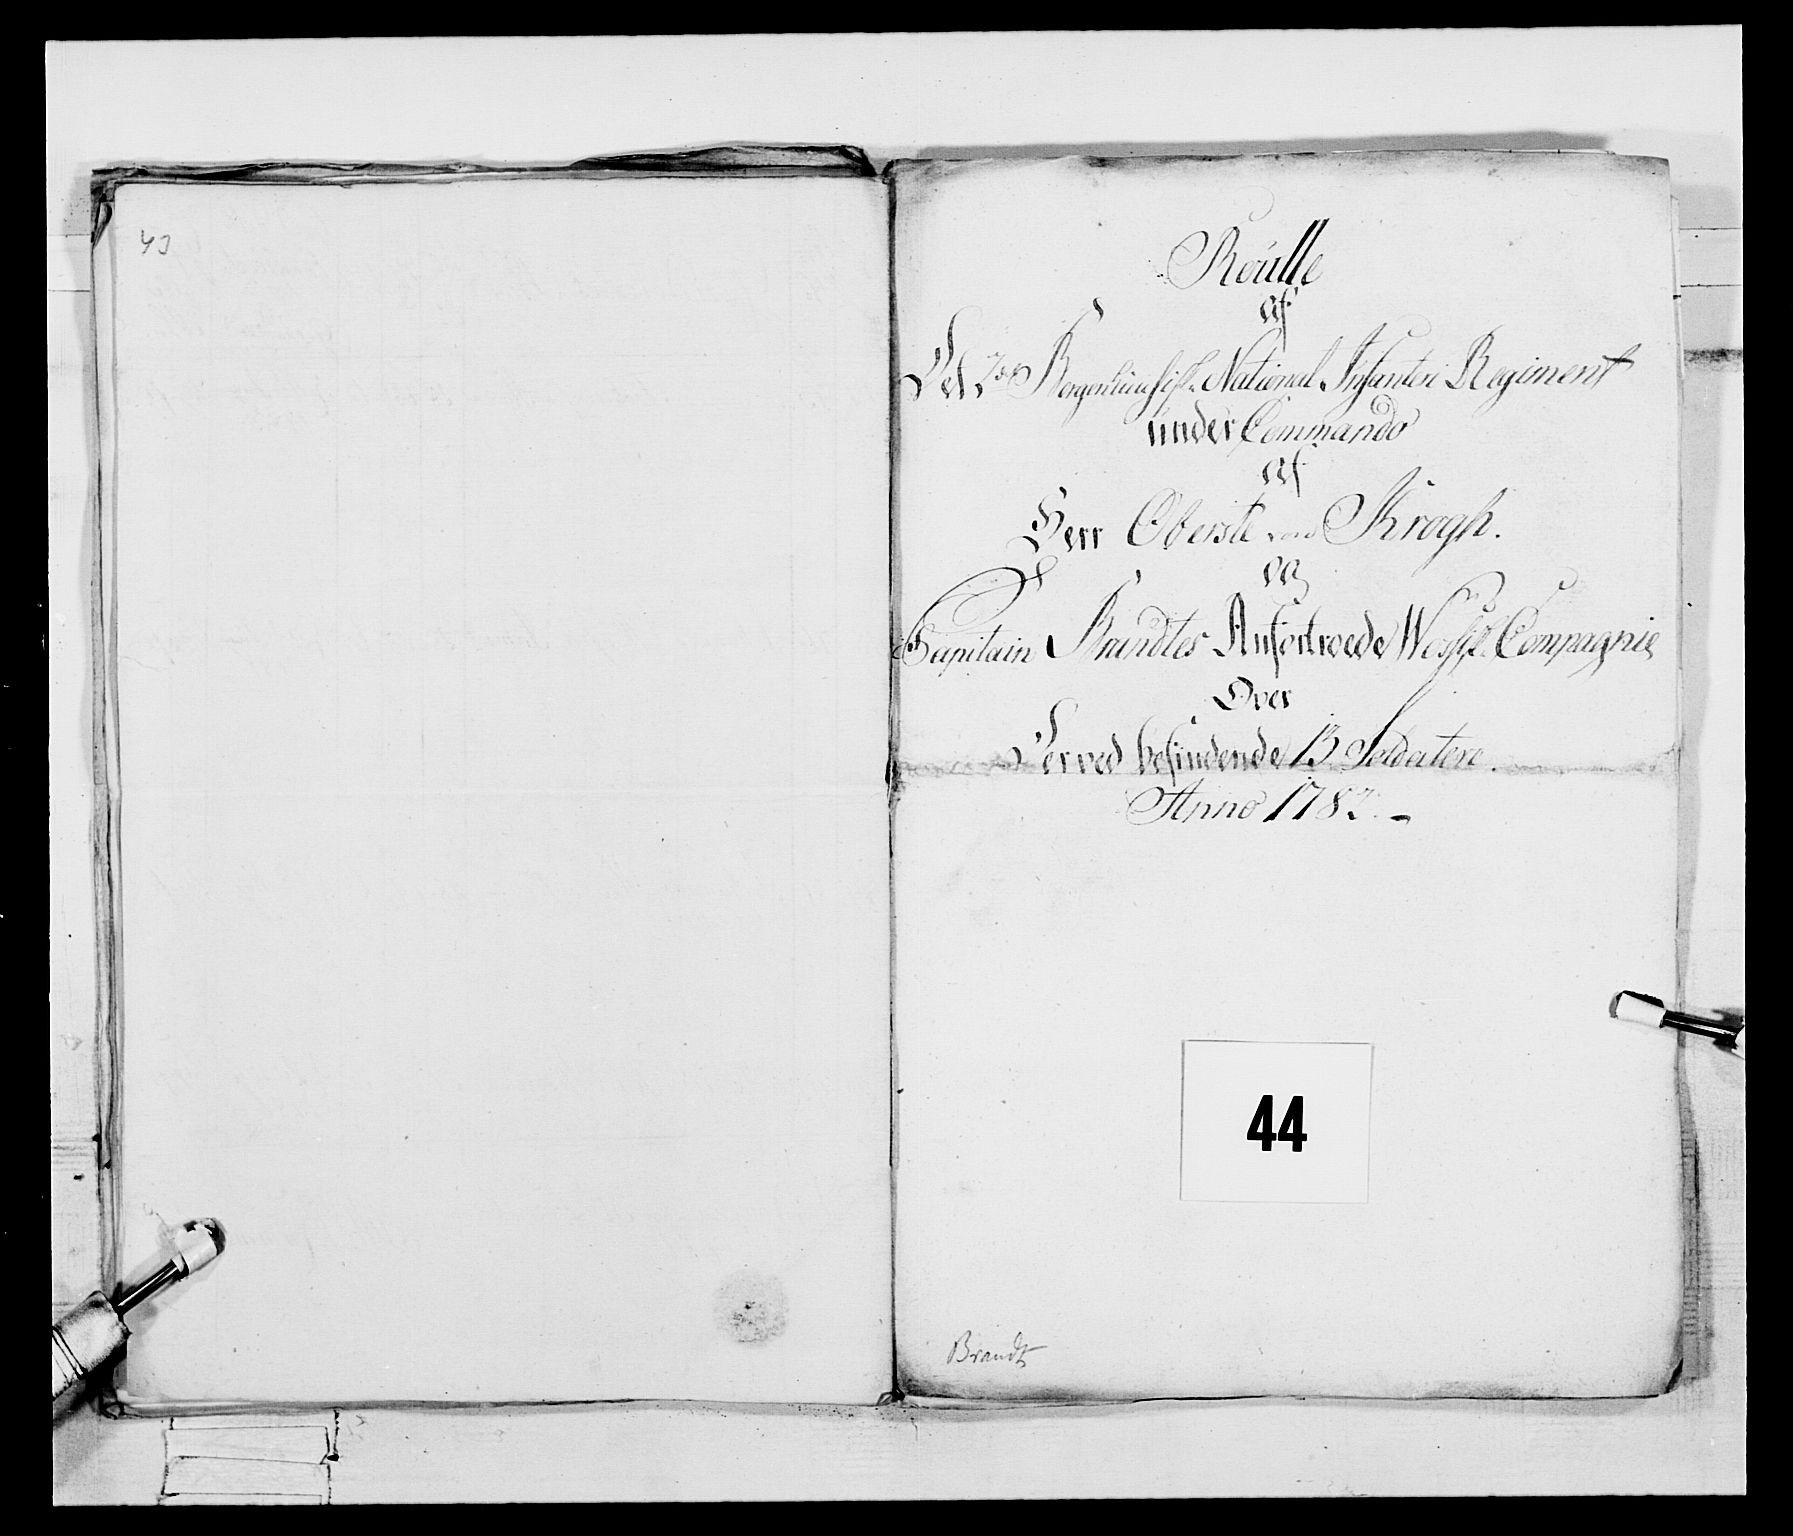 43
Roulle
af
Det 2det Bergenhuusiske National Infanteri Regiment
under Commando
af
Herr Oberste von Krogh.
og
Capitain Brandtes Anfortroede Wossiske Compagnie
Over
Derved befindende B Soldatere.
Anno 1782. –
44
Brandt